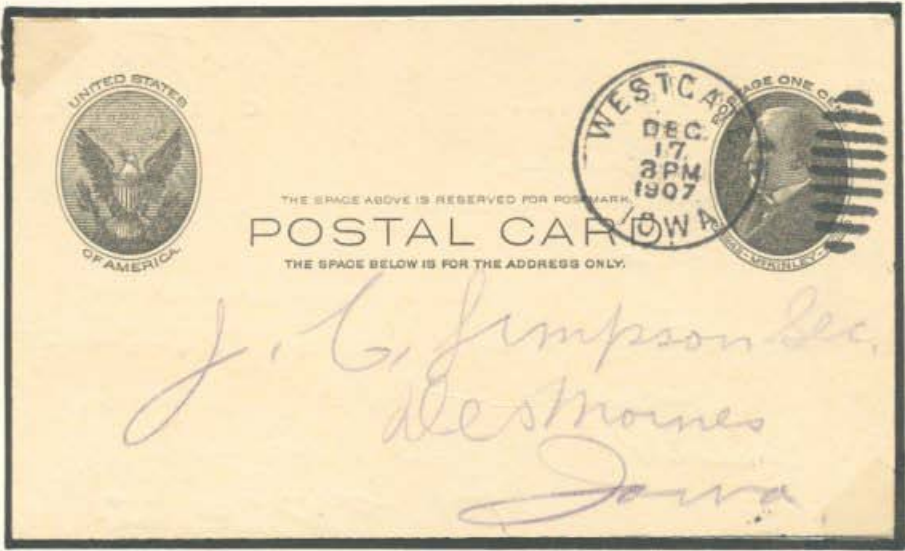 UNITED STATES
OF AMERICA.
WESTGATE
DEC.
17
3 PM
1907
IOWA
THE SPACE ABOVE IS RESERVED FOR POSTMARK.
POSTAL CARD
THE SPACE BELOW IS FOR THE ADDRESS ONLY.
-McKINLEY-
J. C. Simpson Sec.
Des Moines
Iowa